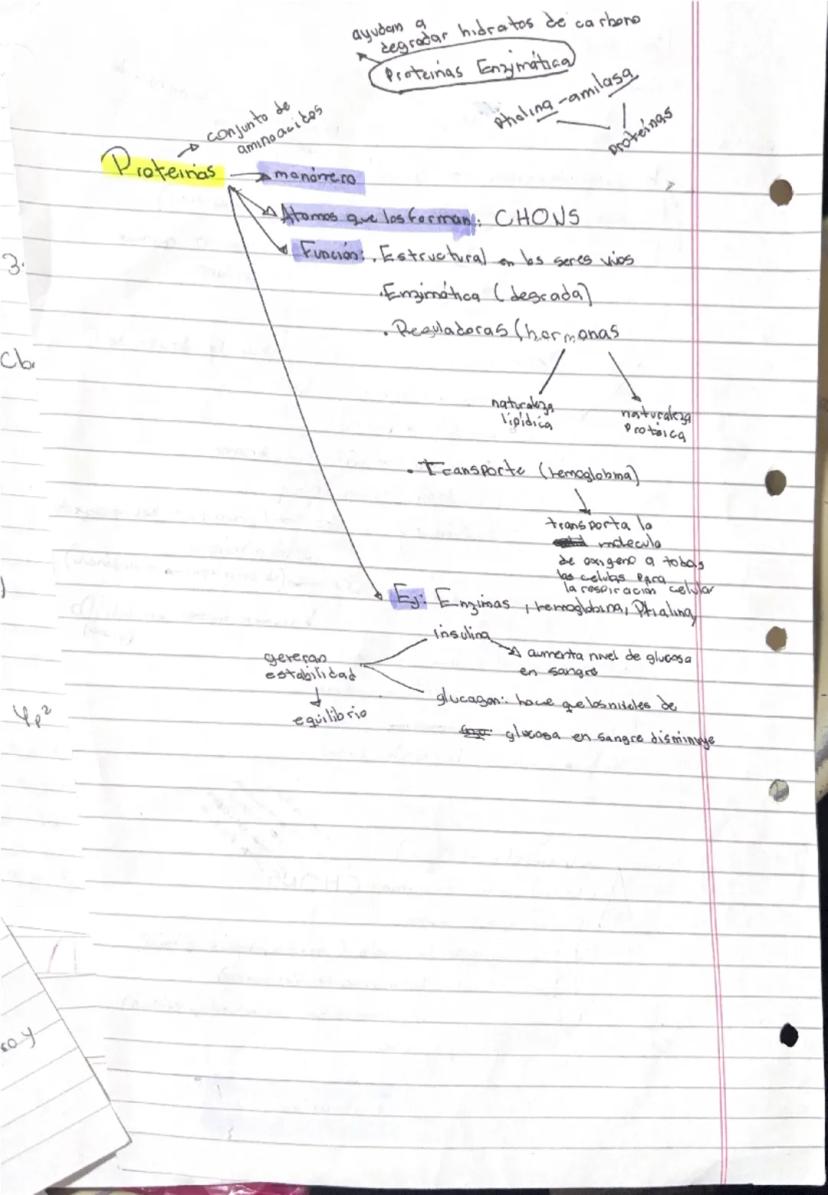 ayudan a
degradar hidratos de carbono
Proteinas Enzimática
Ptialina-amilasa
proteínas
conjunto de
aminoacidos
Proteinas
monómero
Atomos que los forman: CHONS
Función: . Estructural en los seres vivos
. Enzimática (degrada)
. Reguladoras (hormonas
naturaleza
lipídica
naturaleza
proteica
. Transporte (hemoglobina)
transporta la
molecula
de oxigeno a todas
las celulas para
la respiracion celular
Ej: Enzimas, hemoglobina, Ptialina,
insulina
aumenta nivel de glucosa
en sangre
generan
estabilidad
equilibrio
glucagon: hace que los niveles de
glucosa en sangre disminuye
3.
Cb
4p²
so y